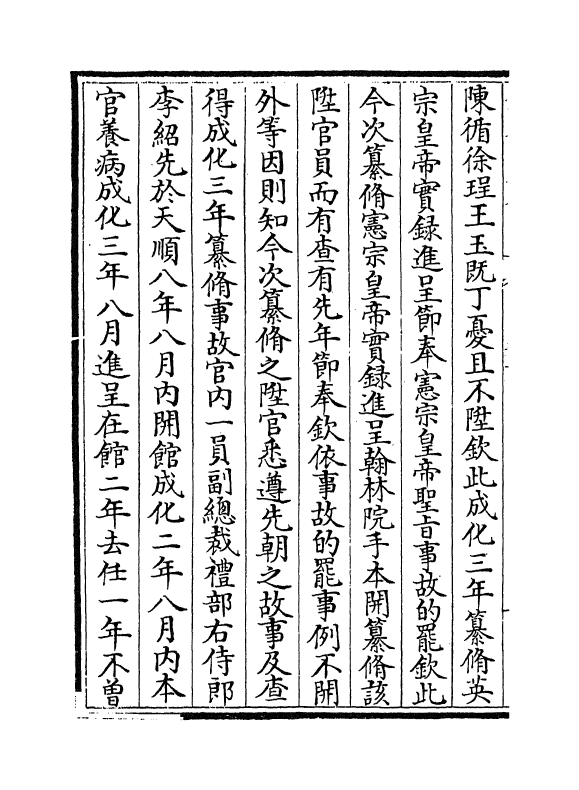 陳循徐珵王玉既丁憂且不陞欽此成化三年纂脩英
宗皇帝實録進呈節奉憲宗皇帝聖旨事故的罷欽此
今次纂脩憲宗皇帝實録進呈翰林院手本開纂脩該
陞官員而有查有先年節奉欽依事故的罷事例不開
外等因則知今次纂脩之陞官悉遵先朝之故事及查
得成化三年纂脩事故官内一員副總裁禮部右侍郎
李紹先於天順八年八月内開館成化二年八月内本
官養病成化三年八月進呈在館二年去任一年不曾